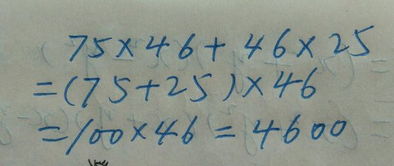 75×46+46×25
=(75+25)×46
=100×46=4600